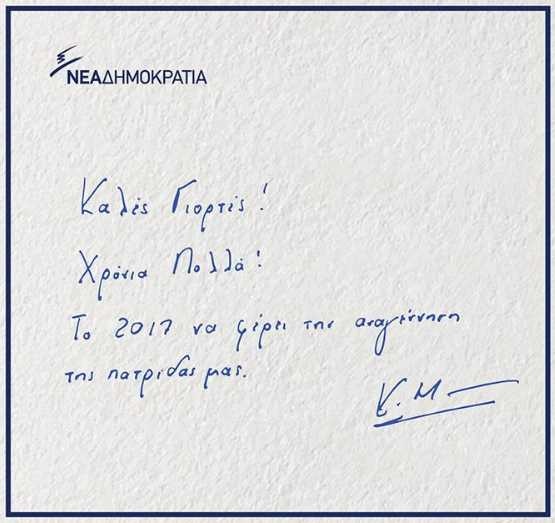 ΝΕΑΔΗΜΟΚΡΑΤΙΑ
Καλές Γιορτές!
Χρόνια Πολλά!
Το 2017 να φέρει την αναγέννηση
της πατρίδας μας.
Κ. Μ